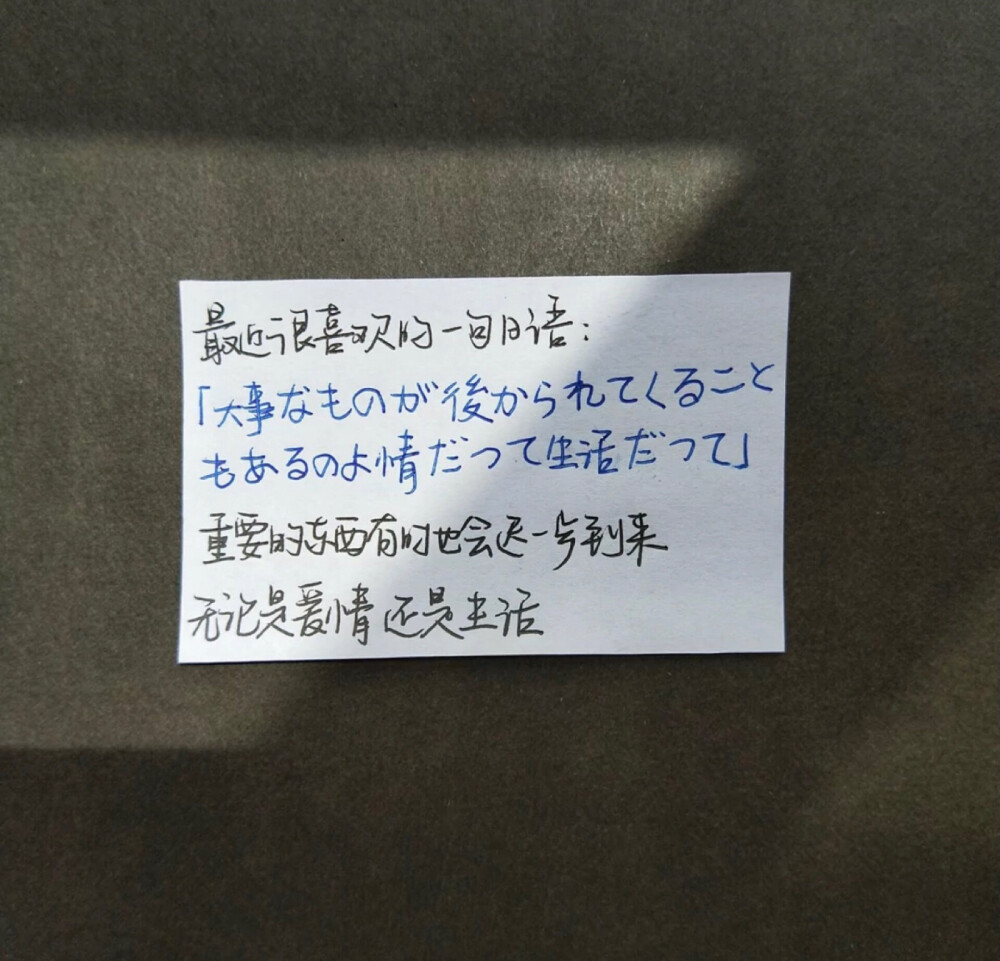 最近很喜欢的一句日语:
「大事なものが後かられてくること
もあるのよ情だって生活だって」
重要的东西有时也会迟一步到来
无论是爱情 还是生活